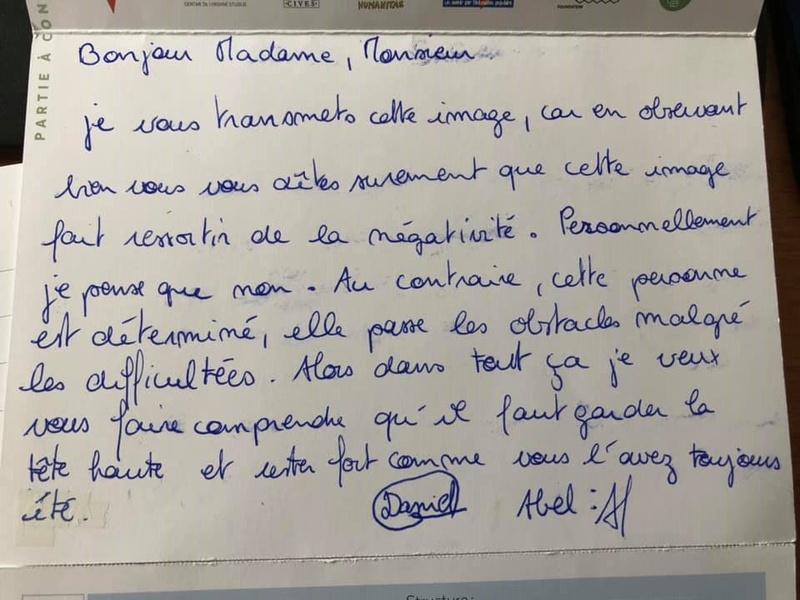 PARTIE À CON
CENTRE DE L'ORDINE STUDIO
CIVES
HUMANITAS
FOUNDATION
Bonjour Madame, Monsieur
je vous transmets cette image, car en observant
bien vous vous dîtes surement que cette image
fait ressortir de la négativité. Personnellement
je pense que non. Au contraire, cette personne
est déterminé, elle passe les obstacles malgré
les difficultées. Alors dans tout ça je veux
vous faire comprendre qu'il faut garder la
tête haute et rester fort comme vous l'avez toujours
été.
Daniel Abel :
Structure: